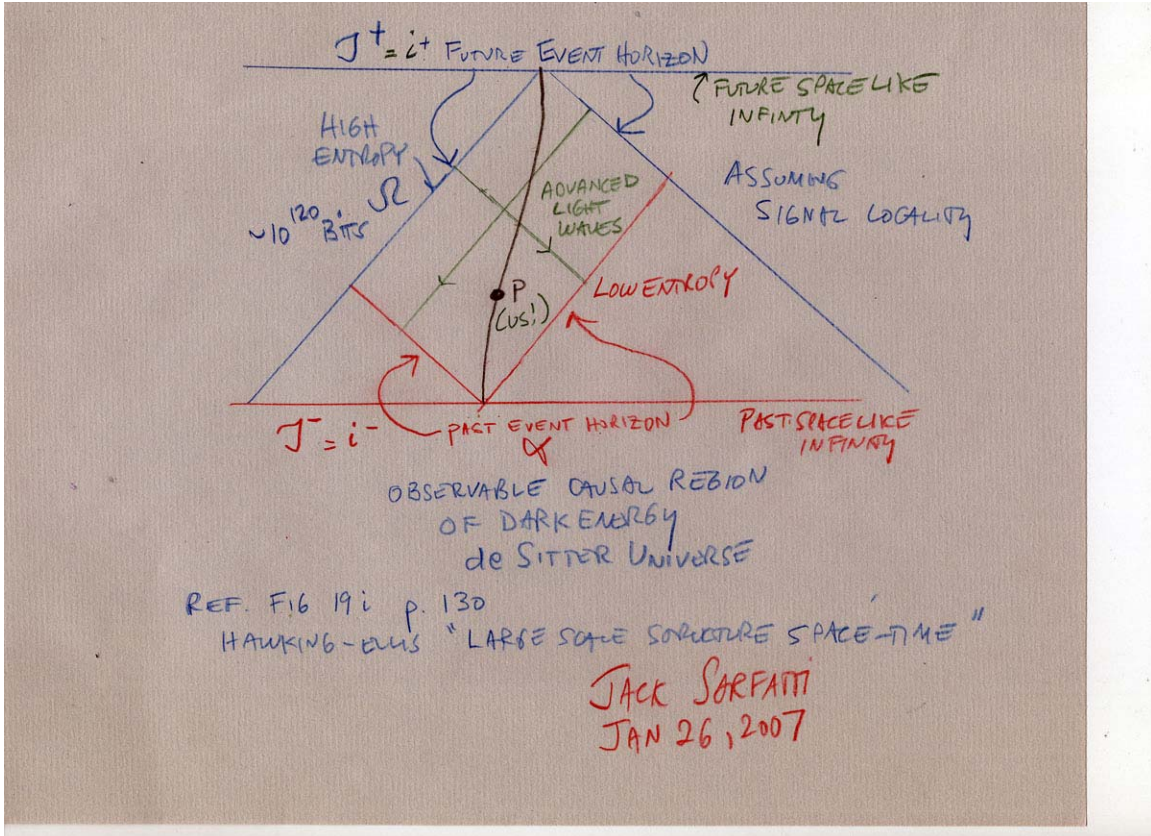 J⁺ = i⁺ FUTURE EVENT HORIZON
FUTURE SPACE LIKE
INFINTY
HIGH
ENTROPY
~10¹²⁰ BITS Ω
ADVANCED
LIGHT
WAVES
ASSUMING
SIGNAL LOCALITY
P
(US!)
LOW ENTROPY
J⁻ = i⁻
PAST EVENT HORIZON
α
PAST SPACE LIKE
INFINITY
OBSERVABLE CAUSAL REGION
OF DARK ENERGY
de SITTER UNIVERSE
REF. FIG 19 i p. 130
HAWKING-ELLIS "LARGE SCALE STRUCTURE SPACE-TIME"
JACK SARFATTI
JAN 26, 2007